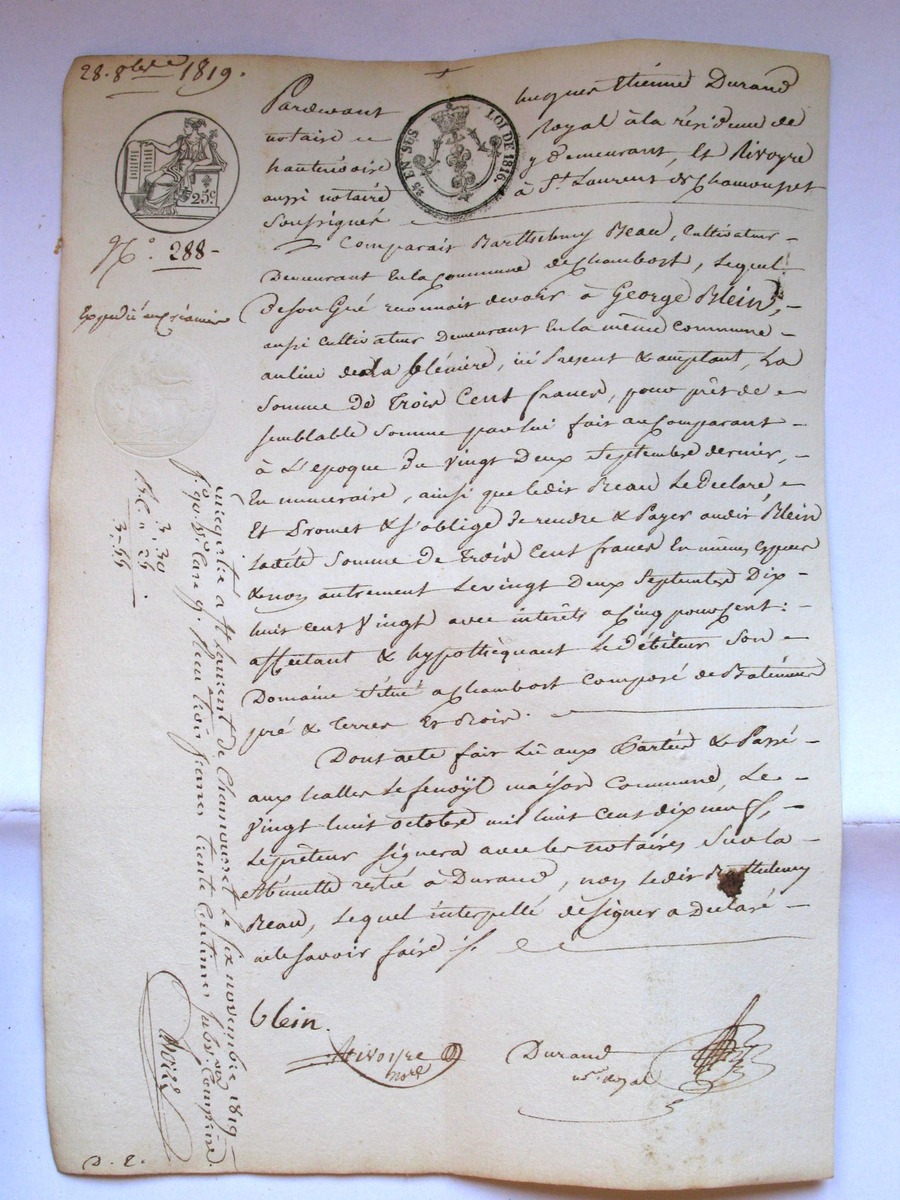 28. 8bre 1819.
Pardevant Jacques Etienne Durand
notaire royal à la résidence de
hauterivoire y demeurant, et Rivoyre
aussi notaire à St. Laurent de Chamousset
Soussignés
25 EN SUS LOI DE 1816.
25c
No. 288-
Expédié au Créancier
Comparait Barthelemy Beau, Cultivateur
Demeurant En la Commune de Chambost, Lequel
De Son Gré reconnait devoir à George Blein,
aussi Cultivateur Demeurant En la même Commune
au lieu de La blénière, ici Présent & acceptant, La
Somme De Trois Cent francs, pour prêt de
semblable Somme par lui fait au Comparant
à L'époque Du Vingt Deux Septembre dernier,
En numeraire, ainsi que ledit Beau Le Declare
Et Promet & s'oblige de rendre & Payer audit Blein
Ladite Somme De Trois Cent francs En mêmes Especes
& non autrement Le vingt Deux Septembre Dix
huit cent Vingt avec intérêts a Cinq pour Cent:
affectant & hypothèquant Le Débiteur Son
Domaine Situé a Chambost Composé de Batiments
pré & Terres Et Bois.
Dont acte fait Lû aux Parties & Passé
aux halles Le fenoÿl maison Commune, Le
Vingt huit octobre mil huit Cent dix neuf,
Le prêteur signera avec les notaires Sur la
Minutte restée à Durand, non Ledit Barthelemy
Beau, Lequel interpellé de signer a Declaré
ne le Savoir faire
blein.
Rivoyre
nore
Durand
nre royal
Enregistré a St Laurent de Chamousset le six novembre 1819
fo. 90 Vo. Case 9. Reçu trois francs trente centimes Subv. on Comprise.
3,30
25
3,55
D. E.